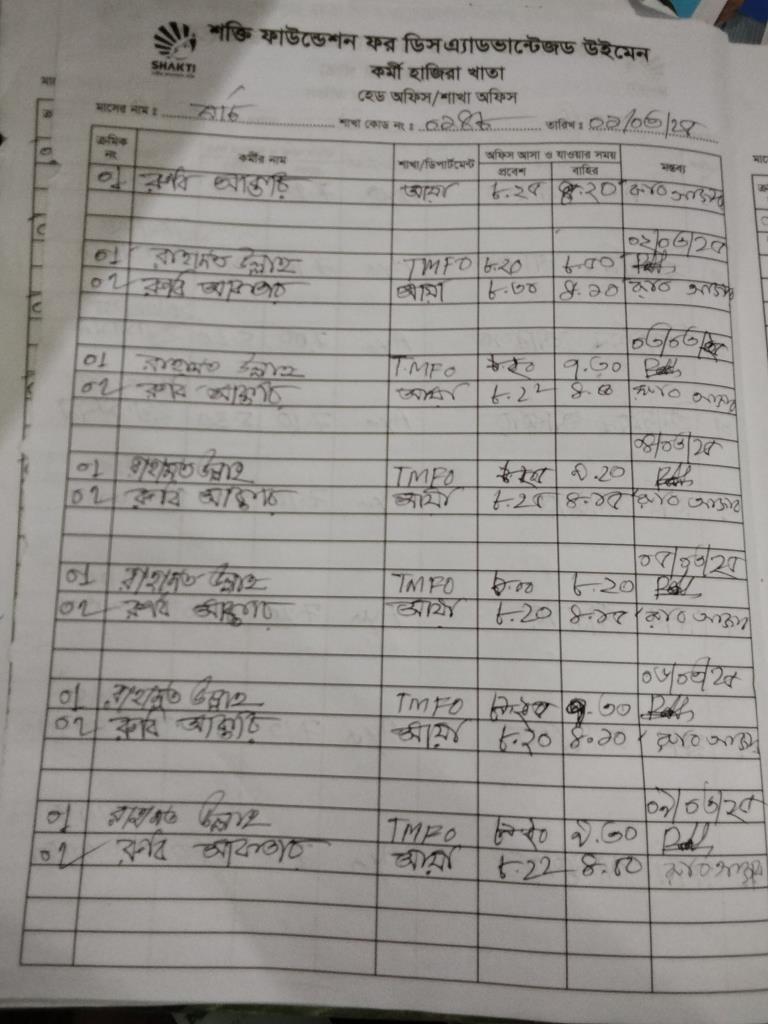 শক্তি ফাউন্ডেশন ফর ডিসএ্যাডভান্টেজড উইমেন
SHAKTI
কর্মী হাজিরা খাতা
হেড অফিস/শাখা অফিস
মাসের নাম : মার্চ শাখা কোড নং : তারিখ : ০১/০৩/২৫
ক্রমিক নং কর্মীর নাম শাখা/ডিপার্টমেন্ট অফিস আসা ও যাওয়ার সময় মন্তব্য
প্রবেশ বাহির
০১ রুবি আক্তার আয়া ৮.২৫ ৪.২০ রুবি আক্তার
০২/০৩/২৫
০১ রাহমত উল্লাহ TMFO ৮.২০ ৮.০০
০২ রুবি আকতার আয়া ৮.৩০ ৪.১০ রুবি আক্তার
০৩/০৩/২৫
০১ রাহমত উল্লাহ TMFO ৭.৩০
০২ রুবি আক্তার আয়া ৮.২২ ৪.০০ রুবি আক্তার
০৪/০৩/২৫
০১ রাহমত উল্লাহ TMFO ৭.২০
০২ রুবি আক্তার আয়া ৮.২৫ ৪.১৫ রুবি আক্তার
০৫/০৩/২৫
০১ রাহমত উল্লাহ TMFO ৮.০০ ৮.২০
০২ রুবি আক্তার আয়া ৮.২০ ৪.১৫ রুবি আক্তার
০৬/০৩/২৫
০১ রাহমত উল্লাহ TMFO ৭.৩০
০২ রুবি আক্তার আয়া ৮.২০ ৪.১০ রুবি আক্তার
০৯/০৩/২৫
০১ রাহমত উল্লাহ TMFO ৭.৩০
০২ রুবি আকতার আয়া ৮.২২ ৪.০০ রুবি আক্তার